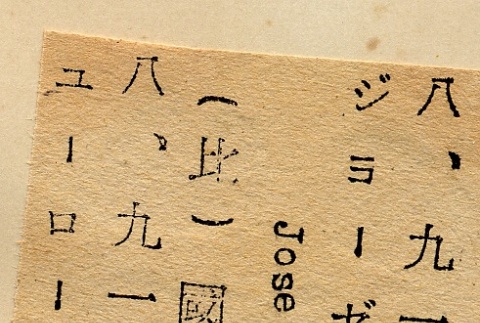 八、九一
ジョーゼ
Jose
(比)國
八、九一
ユーロー